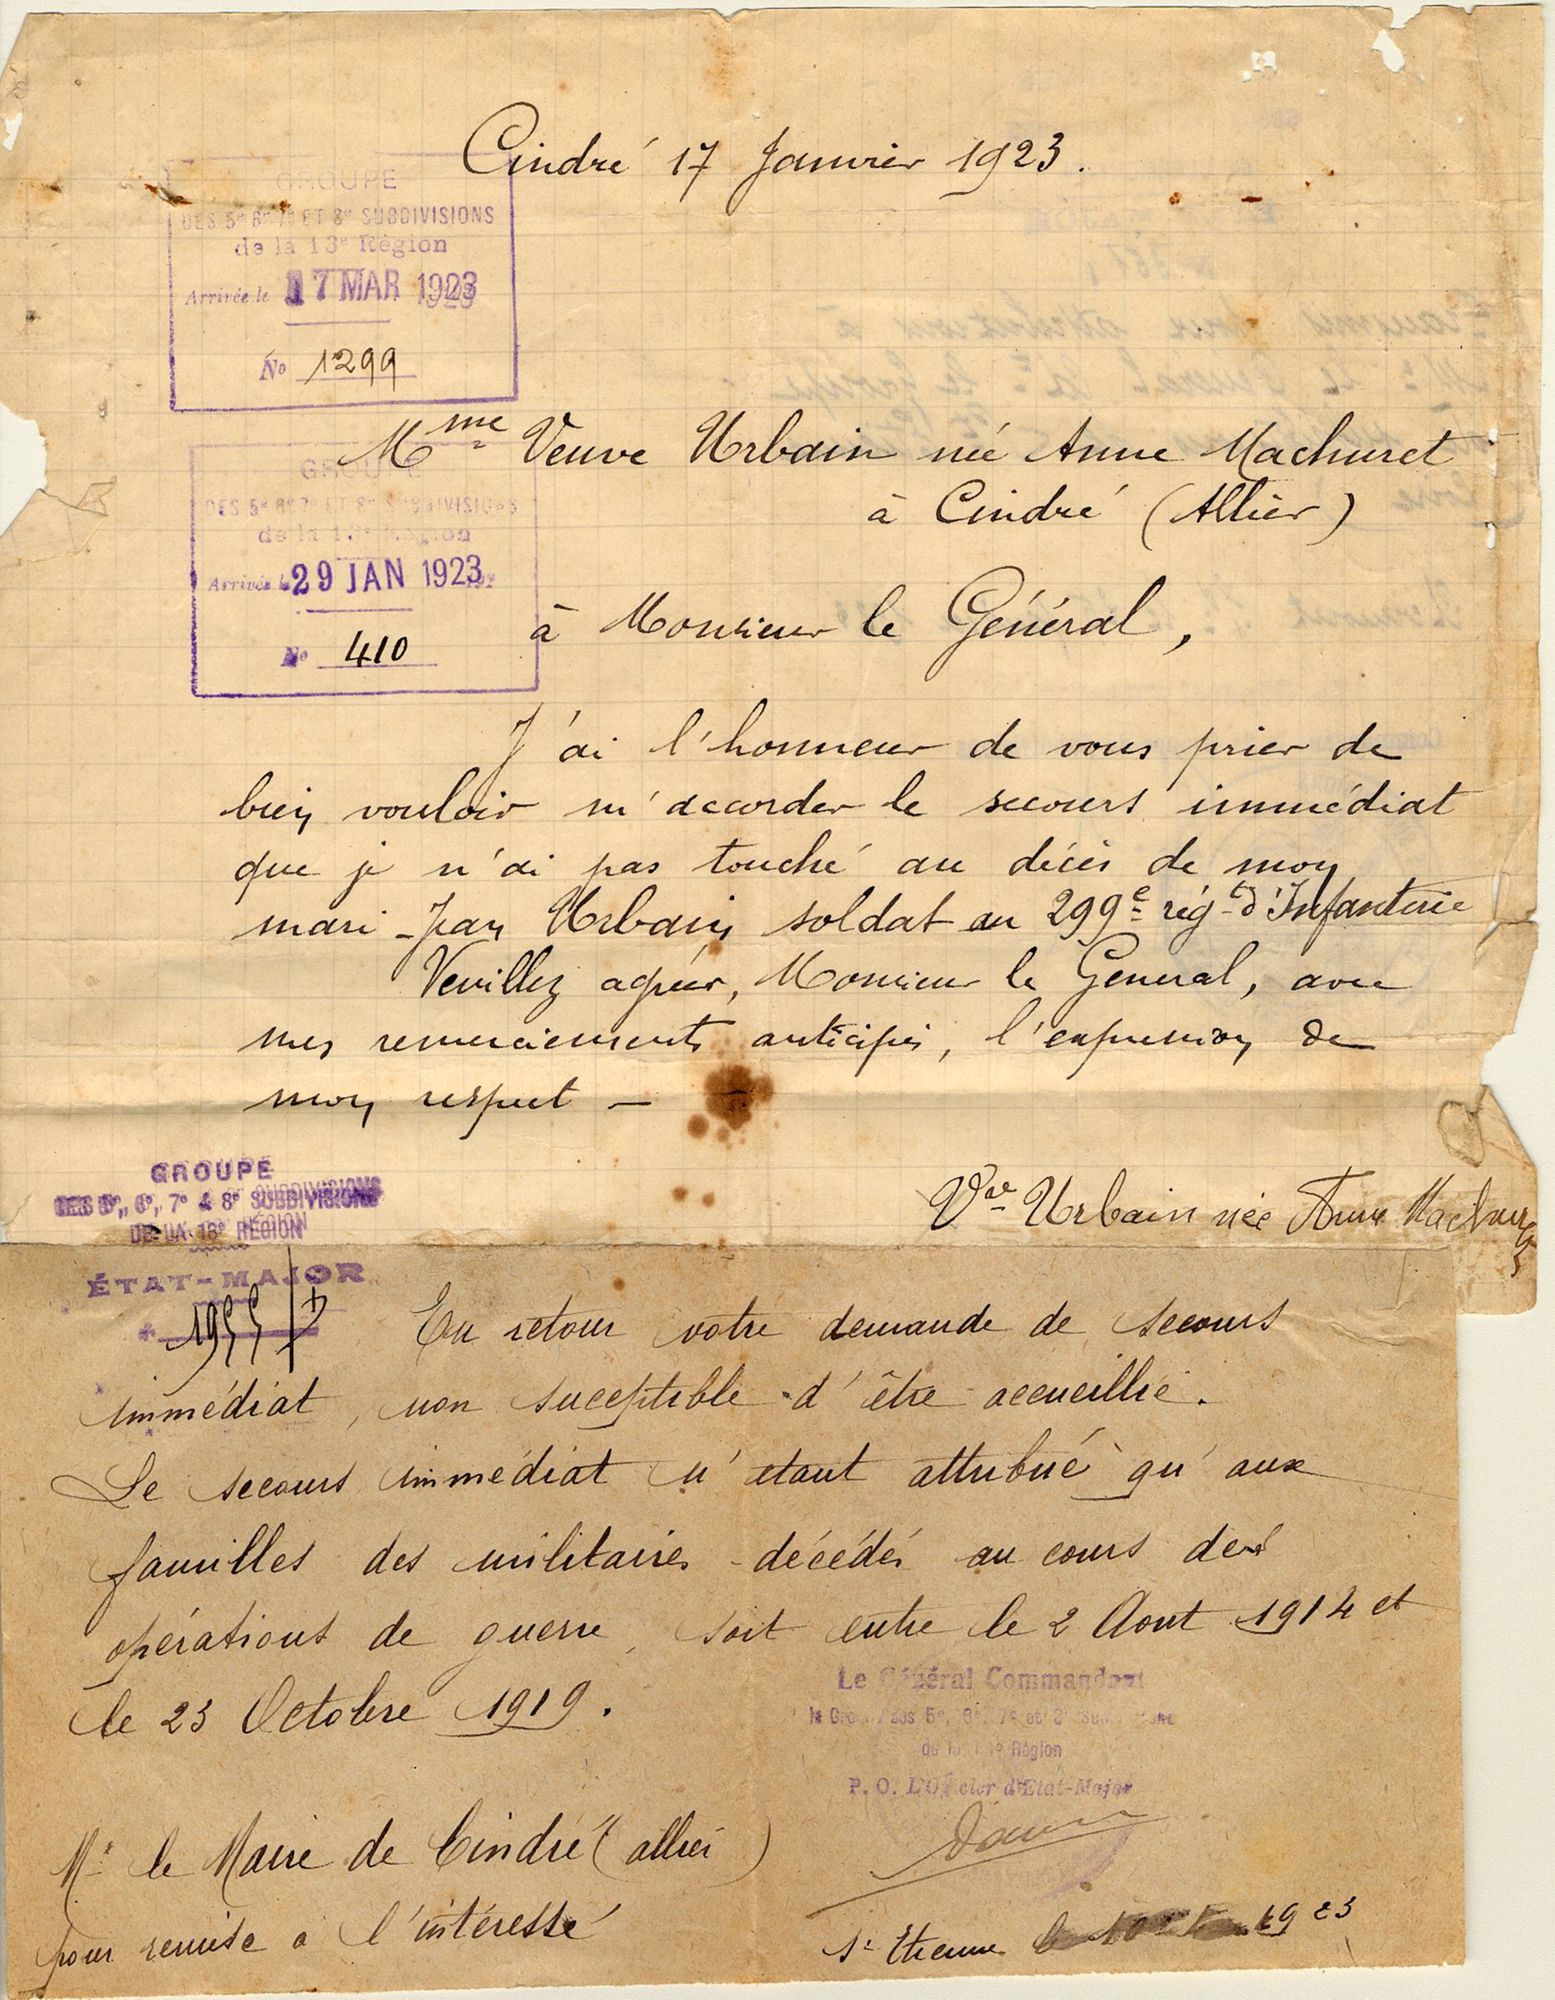 Cindré 17 Janvier 1923.
GROUPE
DES 5e 6e 7e ET 8e SUBDIVISIONS
de la 13e Région
Arrivée le 17 MAR 1923
No 1299
Mme Veuve Urbain née Anne Machuret
à Cindré (Allier)
GROUPE
DES 5e 6e 7e ET 8e SUBDIVISIONS
de la 13e Région
Arrivée le 29 JAN 1923
No 410
à Monsieur le Général,
J'ai l'honneur de vous prier de
bien vouloir m'accorder le secours immédiat
que je n'ai pas touché au décès de mon
mari Jean Urbain soldat au 299e régt d'Infanterie
Veuillez agréer, Monsieur le Général, avec
mes remerciements anticipés, l'expression de
mon respect —
Vve Urbain née Anne Machuret
GROUPE
DES 5e, 6e, 7e & 8e SUBDIVISIONS
DE LA 13e RÉGION
ÉTAT-MAJOR
1955
En retour votre demande de secours
immédiat, non suceptible d'être accueillie.
Le secours immédiat n'etant attribué qu'aux
familles des militaires décédés au cours des
opérations de guerre, soit entre le 2 Aout 1914 et
le 23 Octobre 1919.
Le Général Commandant
le Groupe des 5e, 6e, 7e et 8e Subdivisions
de la 13e Région
P. O. L'Officier d'Etat-Major
Mr le Maire de Cindré (allier)
pour remise a l'intéressé
St Etienne le 10 1923